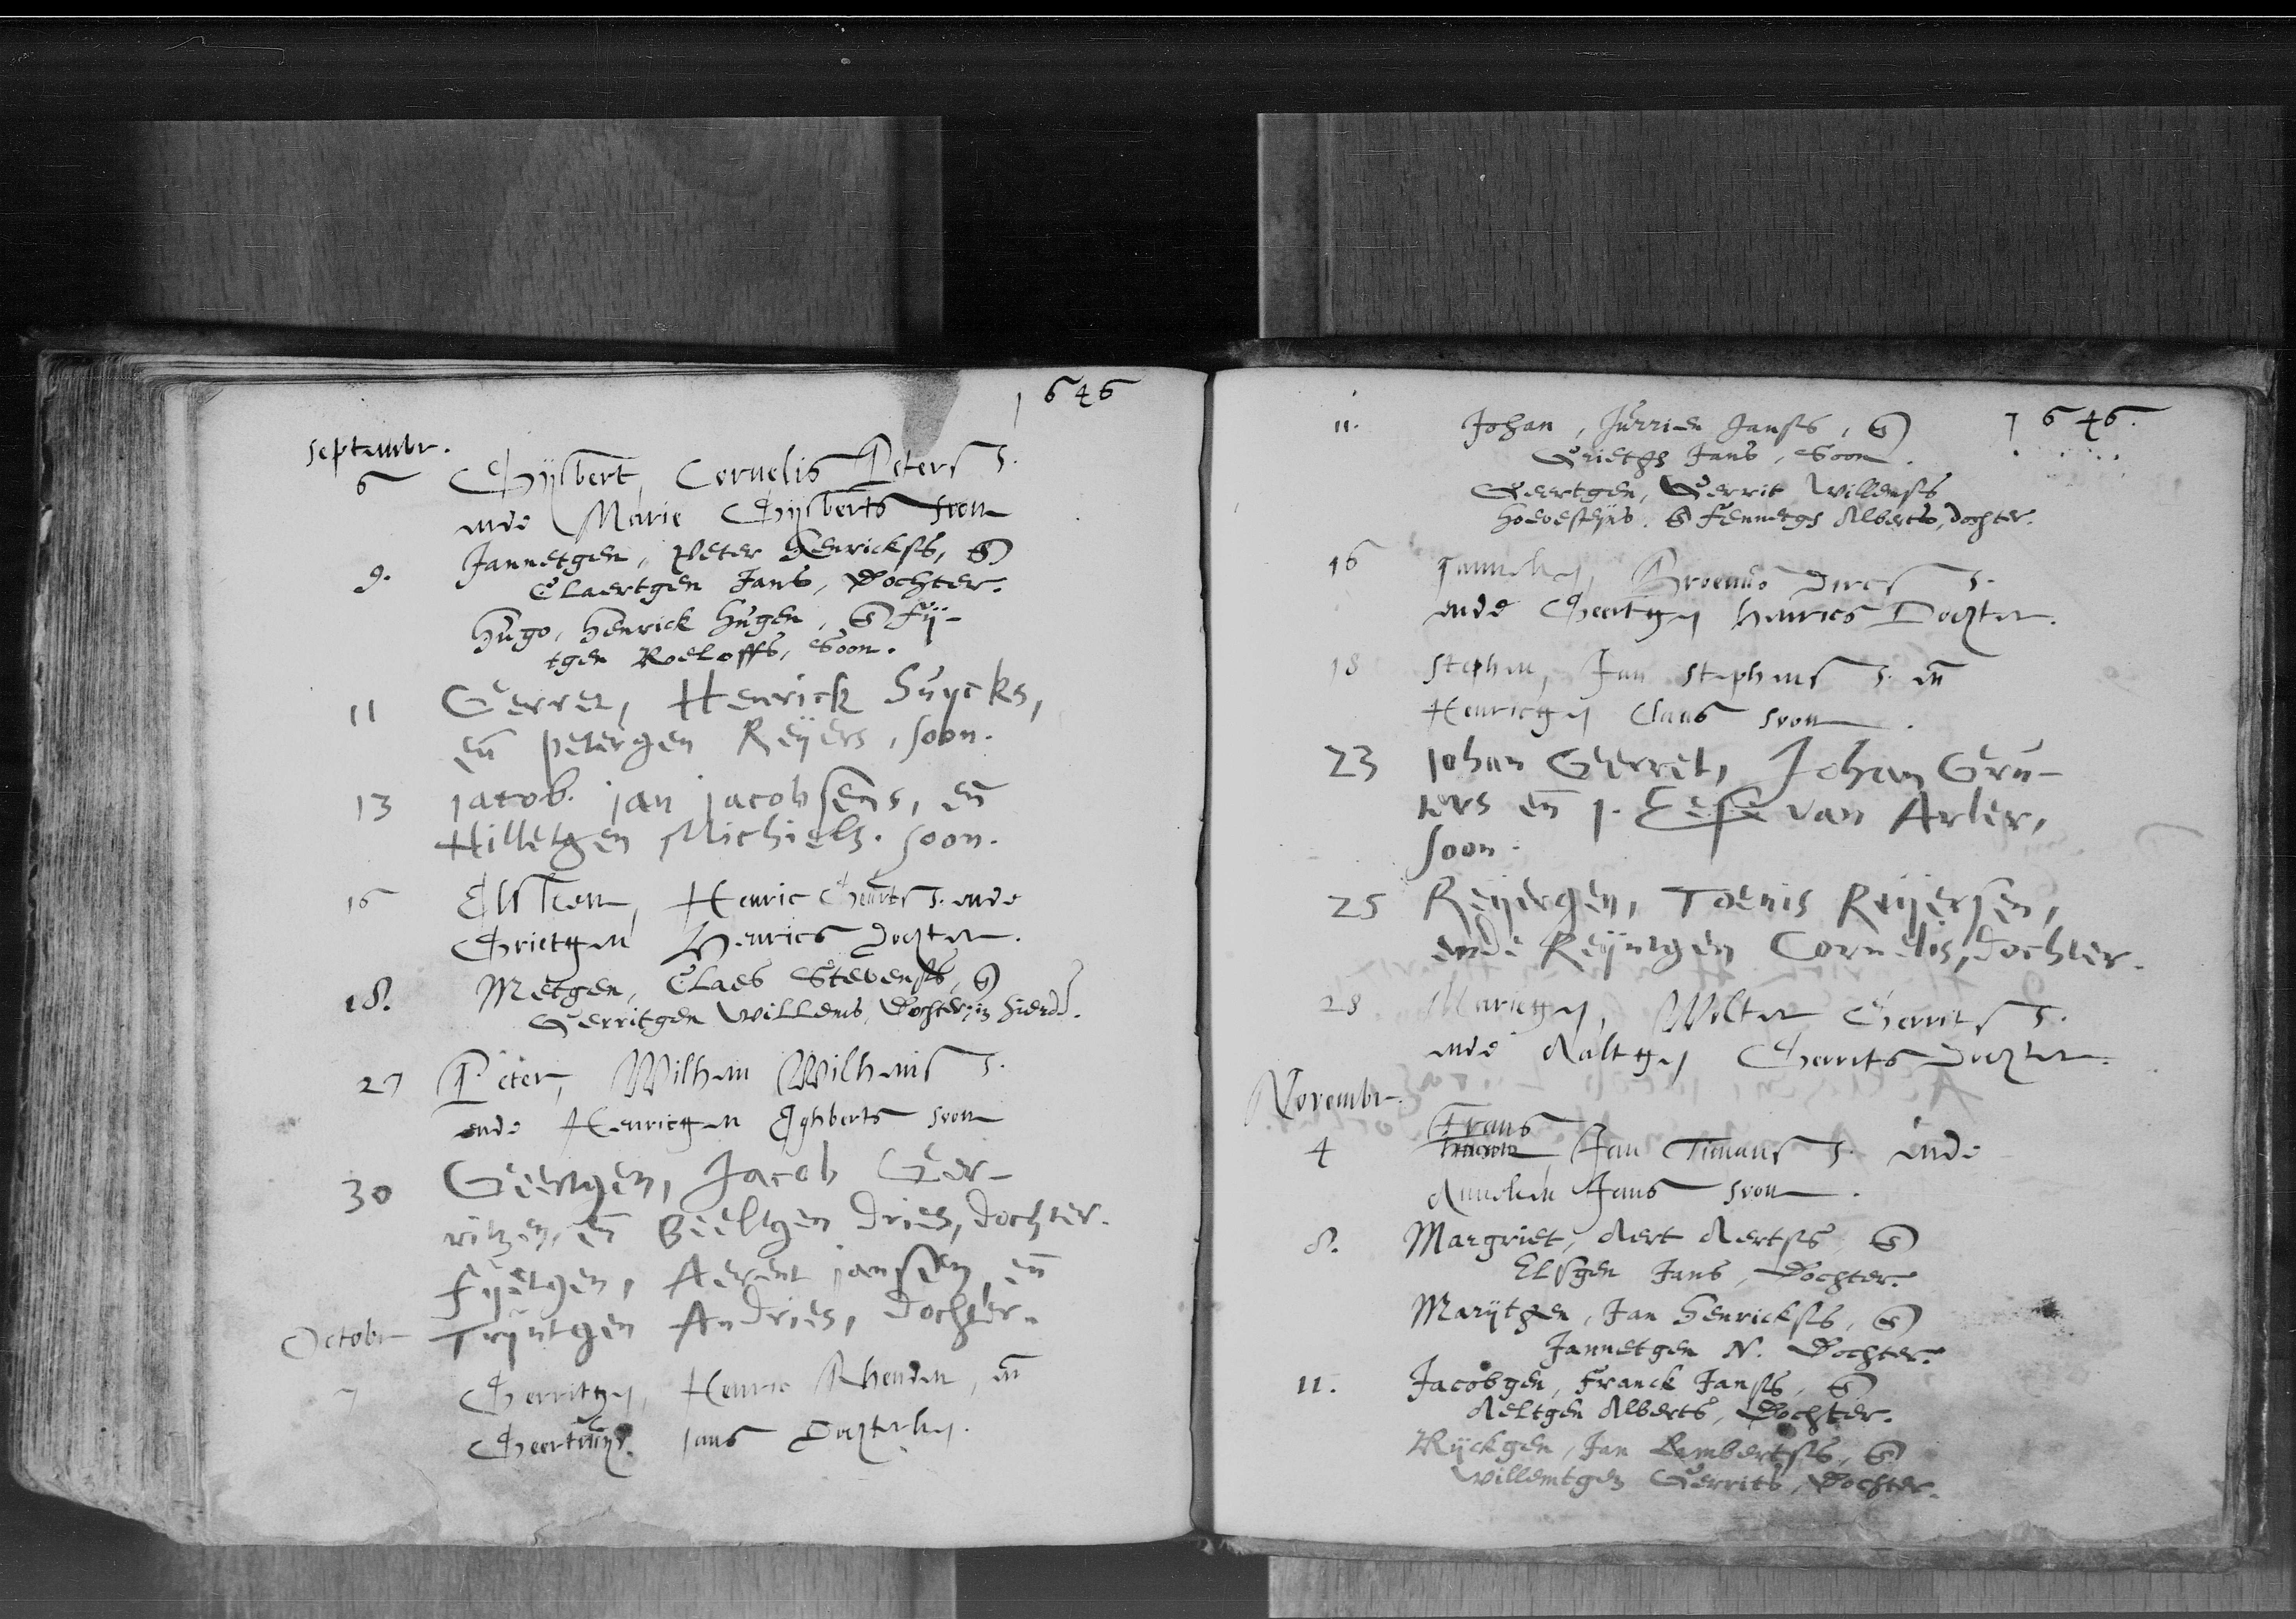 1646
Septembr.
6 Ghijsbert, Cornelis Peters S.
ende Marie Ghijsberts soon
9. Jannetgen, Peter Henricksz, &
Claertgen Jans, Dochter.
Hugo, Henrick Hugen, & Fij-
tgen Roeloffs, Soon.
11 Gerret, Henrick Suycks,
eñ petergen Reyers, soon.
13 jacob. jan jacobsens, eñ
Hilletgen Michiels. soon.
16 Henric Gheurts S. ende
Grietgen Henrics Dochter.
18. Metgen, Claes Stevensz, &
Gerritgen Willems, Dochter, in Hierd.
27 Peter, Wilhem Wilhems S.
ende Henricgen Eghberts soon
30 Geertgen, Jacob Ger-
ritzen, eñ Beeltgen Dries, dochter.
Fijetgen, Aerent jansen, eñ
Trijntgen Andries, dochter.
Octobr
7 Gherritgen, Henric Rhenden, eñ
Gheertruyt Jans Dochterken.
1646.
11. Johan, Jurrien Jansz, &
Grietgs Jans, Soon.
Geertgen, Gerrit Willemsz
Hoevesteyns. & Fennetgs Alberts, dochter.
16 Janneken, Dircs S.
ende Gheertgen Henrics Dochter.
18 Stephen, Jan Stephens S. eñ
Henricgen Claas soon.
23 Johan Gerret, Johan Gru-
ters eñ j. Eefse van Arler,
soon.
25 Reijergen, Toenis Reijersen,
ende Reijntgen Cornelis, dochter.
28 Marietgen, Wolter Gherrits S.
ende Aaltgen Gherrits Dochter.
Novembr.
Frans
4 Jan Timans S. ende
Anneken Jans soon.
8. Margriet, Aert Aertsz, &
Elsgen Jans, Dochter.
Marijtgen, Jan Henricksz, &
Jannetgen N. Dochter.
11. Jacobgen, Franck Jansz, &
Aeltgen Alberts, Dochter.
Rijckgen, Jan Lambertsz, &
Willemtgen Gerrits, Dochter.